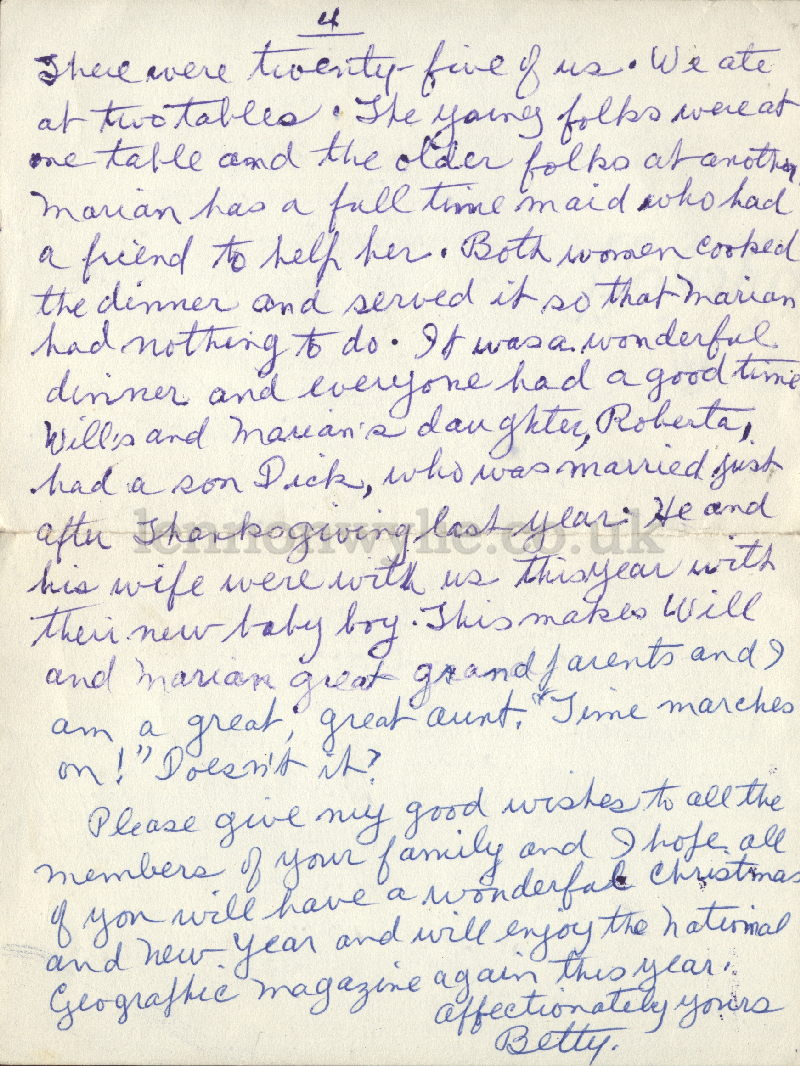 4
There were twenty-five of us. We ate
at two tables. The young folks were at
one table and the older folks at another.
Marian has a full time maid who had
a friend to help her. Both women cooked
the dinner and served it so that Marian
had nothing to do. It was a wonderful
dinner and everyone had a good time
Will's and Marian's daughter, Roberta,
had a son Dick, who was married just
after Thanksgiving last year. He and
lennonwylie.co.uk
his wife were with us this year with
their new baby boy. This makes Will
and Marian great grandparents and I
am a great, great aunt. "Time marches
on!" Doesn't it?
Please give my good wishes to all the
members of your family and I hope all
of you will have a wonderful Christmas
and New Year and will enjoy the National
Geographic Magazine again this year.
Affectionately yours
Betty.